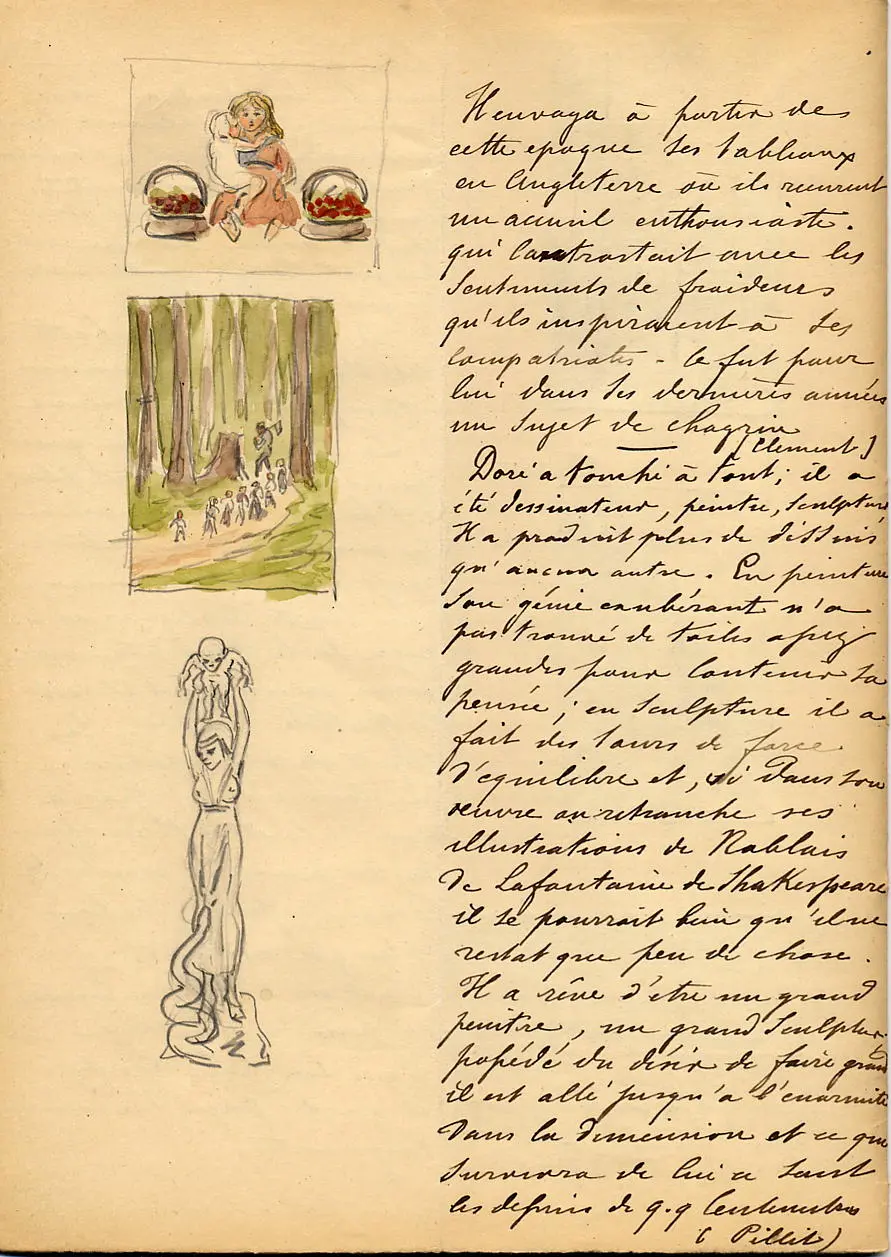 Il envoya à partir de
cette epoque ses tableaux
en Angleterre où ils recurent
un acueil enthousiaste.
qui contrastait avec les
sentiments de froideurs
qu'ils inspiraient à ses
compatriotes - ce fut pour
lui dans ses dernieres années
un sujet de chagrin
(Clement)
Doré a touché à tout; il a
été dessinateur, peintre, sculpteur
Il a produit plus de dessins
qu'aucun autre. En peinture
son génie exubérant n'a
pas trouvé de toiles assez
grandes pour contenir sa
pensée; en sculpture il a
fait des tours de force
d'equilibre et, si dans son
oeuvre on retranche ses
illustrations de Rablais
de Lafontaine de Shakespeare
il se pourrait bien qu'il ne
restat que peu de chose.
Il a rêve d'etre un grand
peintre, un grand sculpteur
possédé du désir de faire grand
il est allé jusqu'a l'enormité
dans la dimension et ce qui
survivra de lui ce sont
les dessins de q.q centimetres
( Pillet)